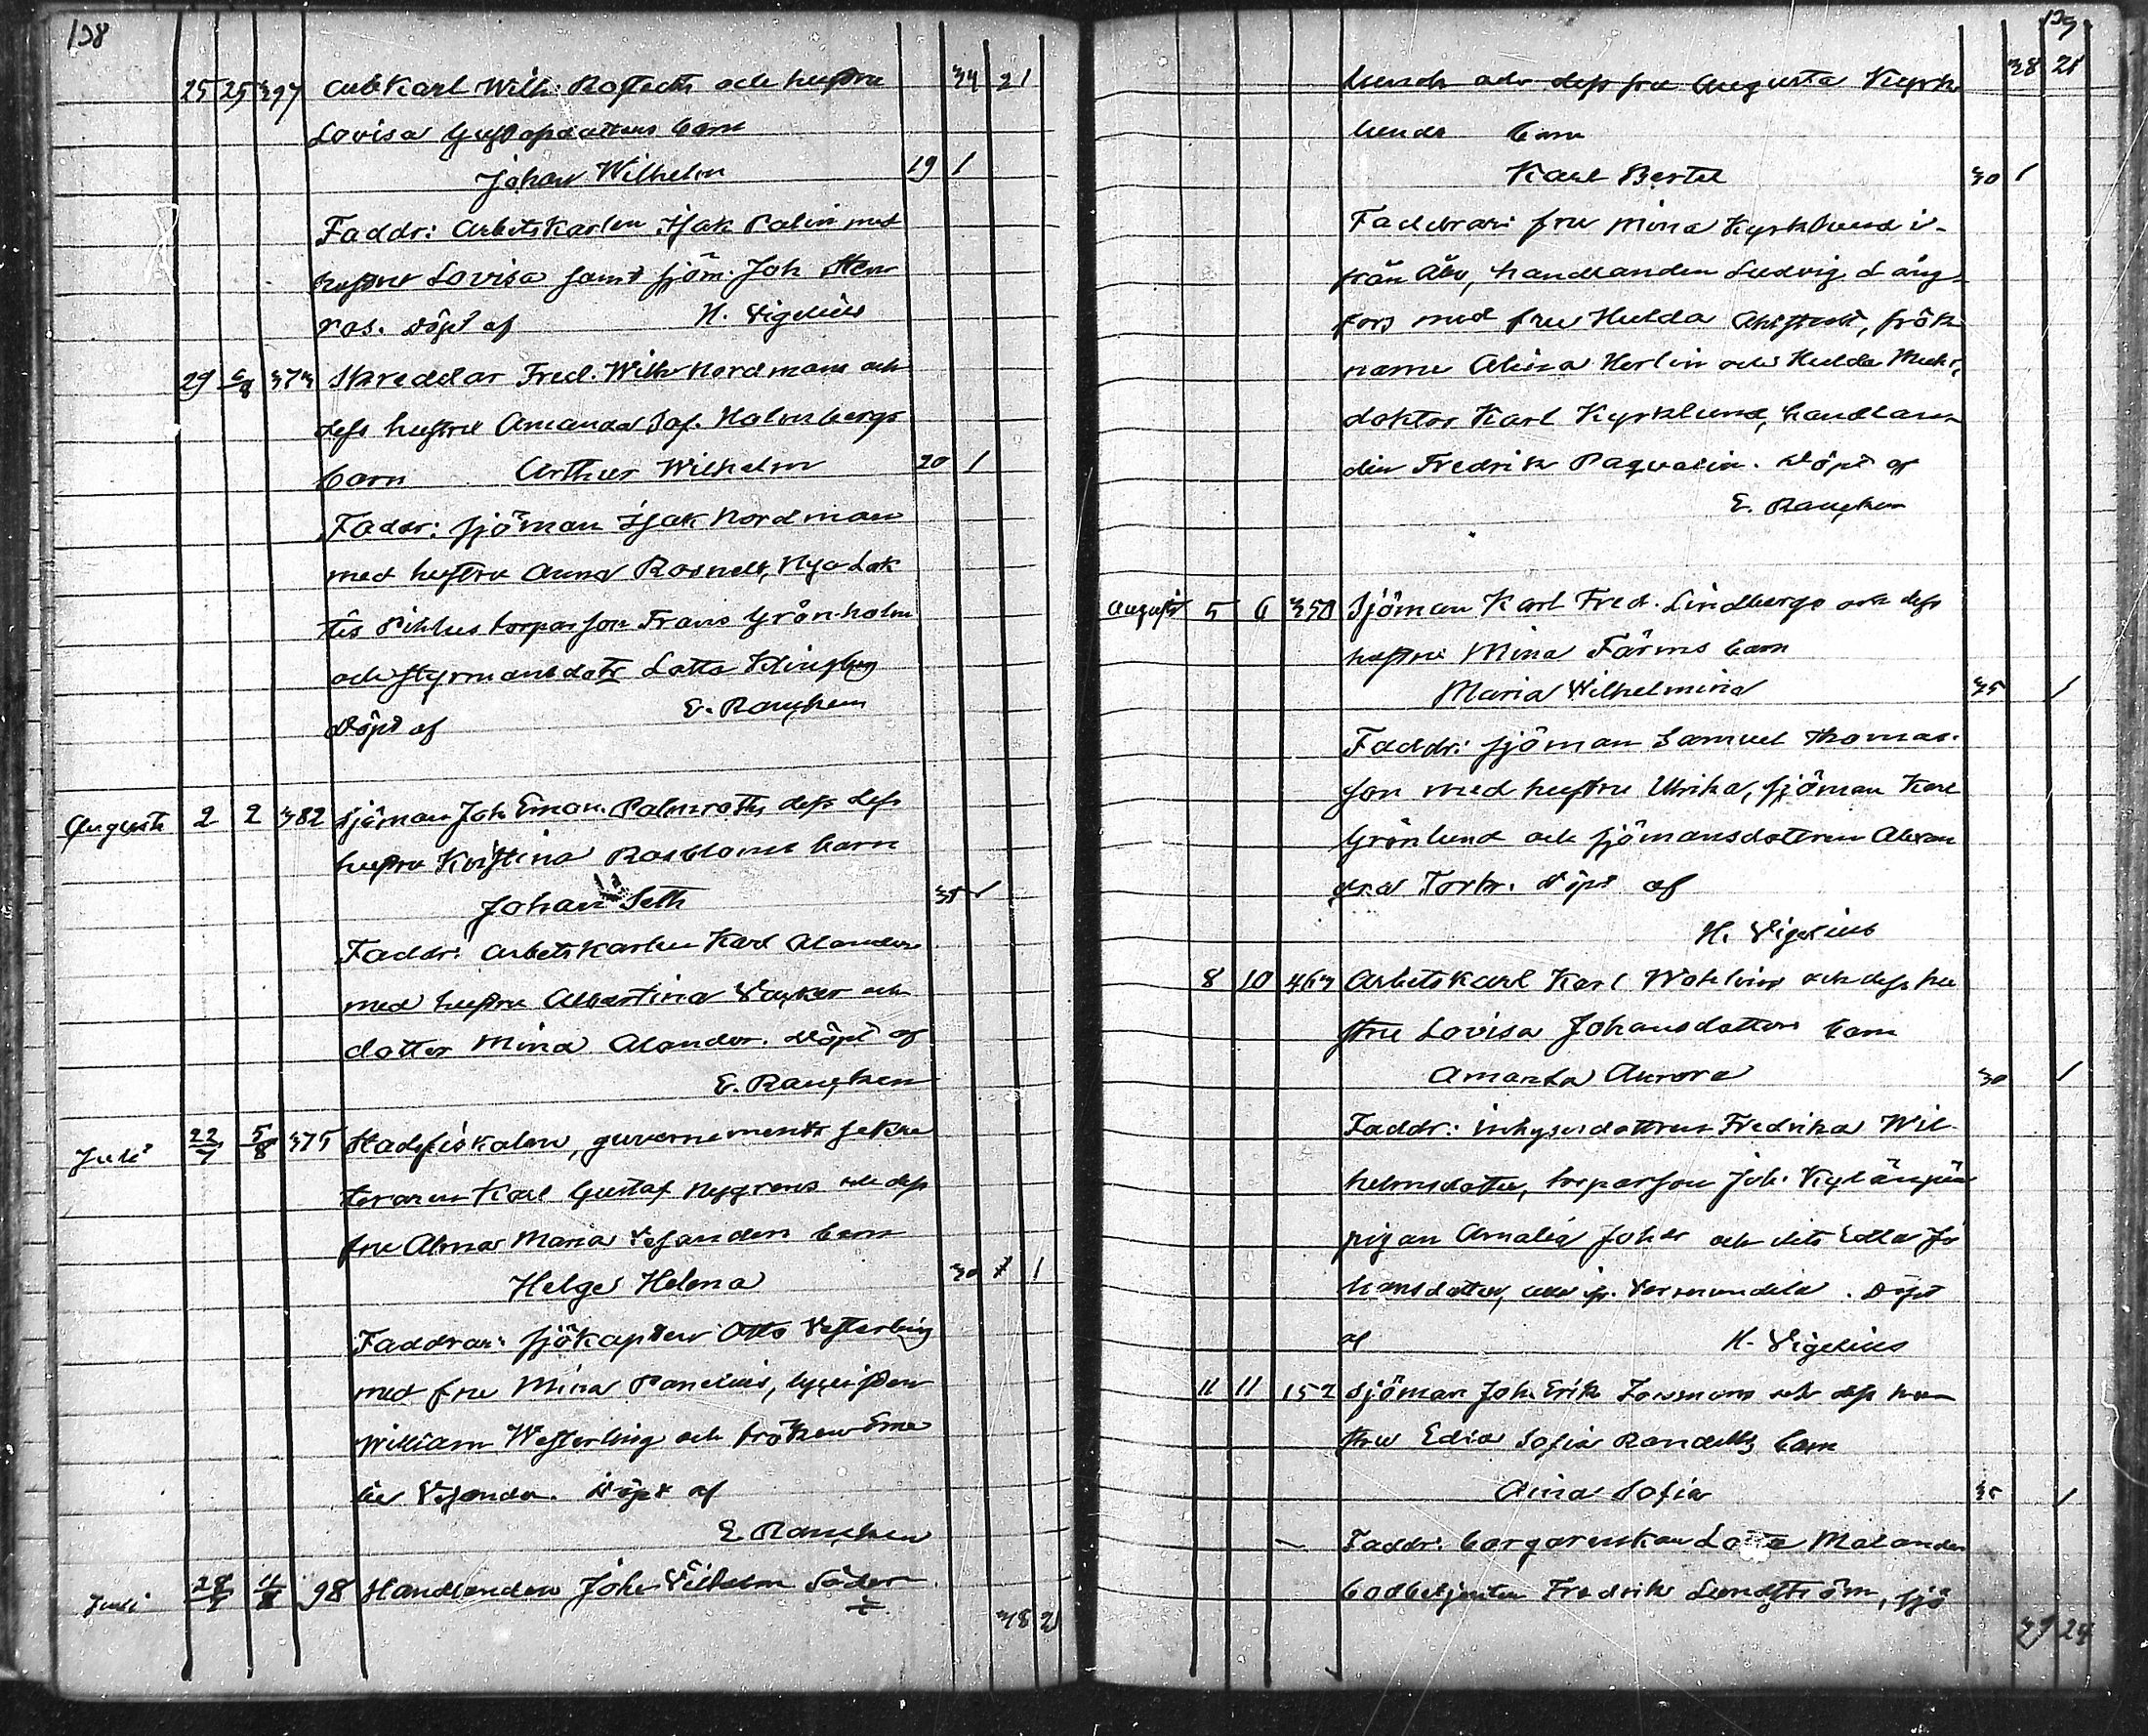 138
25 25 397 Arb. Karl Wilh. och hustru 34 21
Lovisa Gustafsdotters barn
Johan Wilhelm 19 1
Faddr: Arbetskarlen Isak Palin med
hustru Lovisa samt sjöm. Joh Hen
ros. Döpt af H. Vigelius
29 6/8 373 Skreddar Fred. Wilh Nordmans och
dess hustru Amanda Sof. Holmbergs
barn Arthur Wilhelm 20 1
Faddr: sjöman Isak Nordman
med hustru Anna Rosnell, Nya Lak
tis Pihlus torparson Frans Grönholm
och styrmansdotr Lotta Klingberg
Döpt af E. Rancken
Augusti 2 2 382 Sjöman Joh Eman. Palmroths dess dess
hustru Kristina Rosbloms barn
Johan Seth 35 1
Faddr: Arbetskarlen Karl Alander
med hustru Albertina och
dotter Mina Alander. Döpt af
E. Rancken
Juli 22/7 5/8 375 Stadsfiskalen, guvernements sekre
teraren Karl Gustaf Nygrens och dess
fru Alma Maria Vesanders barn
Helge Helena 30 1 1
Faddrar: sjökapten Otto Vesterling
med fru Mina Panelius, lyceisten
William Westerling och fröken Eme
lie Vesander. Döpt af
E. Rancken
Juli 28/7 11/8 98 Handlanden Joh. Vilhelm Söder
38 21
139
38 21
lunds och dess fru Augusta Kyrk
lunds barn
Karl Bertel 30 1
Faddrar: fru Mina Kyrklund i
från Åbo, handlanden Ludvig Lång
fors med fru Hulda Ahlstedt, frök
narne Alina Herlin och Hulda
doktor Karl Kyrklund, handlan
den Fredrik Paqvalin. Döpt af
E. Rancken
Augusti 5 6 350 Sjöman Karl Fred. Lindbergs och dess
hustru Mina Färms barn
Maria Wilhelmina 35 1
Faddr: sjöman Samuel Thomas
son med hustru Ulrika, sjöman Karl
Grönlund och sjömansdottren Alexan
dra Döpt af
H. Vigelius
8 10 463 Arbetskarl Karl Wahlins och dess hu
stru Lovisa Johansdotters barn
Amanda Aurora 30 1
Faddr: inhysesdottren Fredrika Wil
helmsdotter, torparson Joh.
pigan Amalia Johs och dito Edla Jo
hansdotter, Döpt
af H. Vigelius
11 11 152 Sjöman Joh. Erik och dess hu
stru Edla Sofia Randells barn
Aina Sofia 35 1
Faddr: borgarenkan Lotta Malander
bodbetjenten Fredrik Lundström, sjö
39 24